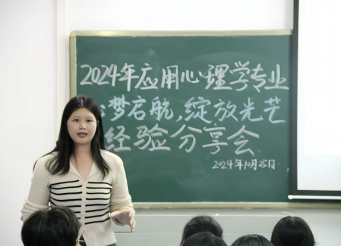 2024年应用心理学专业
梦启航,绽放光艺
经验分享会
2024年10月25日